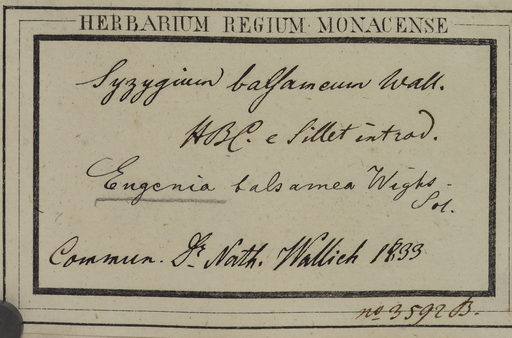 HERBARIUM REGIUM MONACENSE
Syzygium balsameum Wall.
HBC. e Sillet introd.
Eugenia balsamea Wigh.
Commun. Dr. Nath. Wallich 1833
no 3592 B.